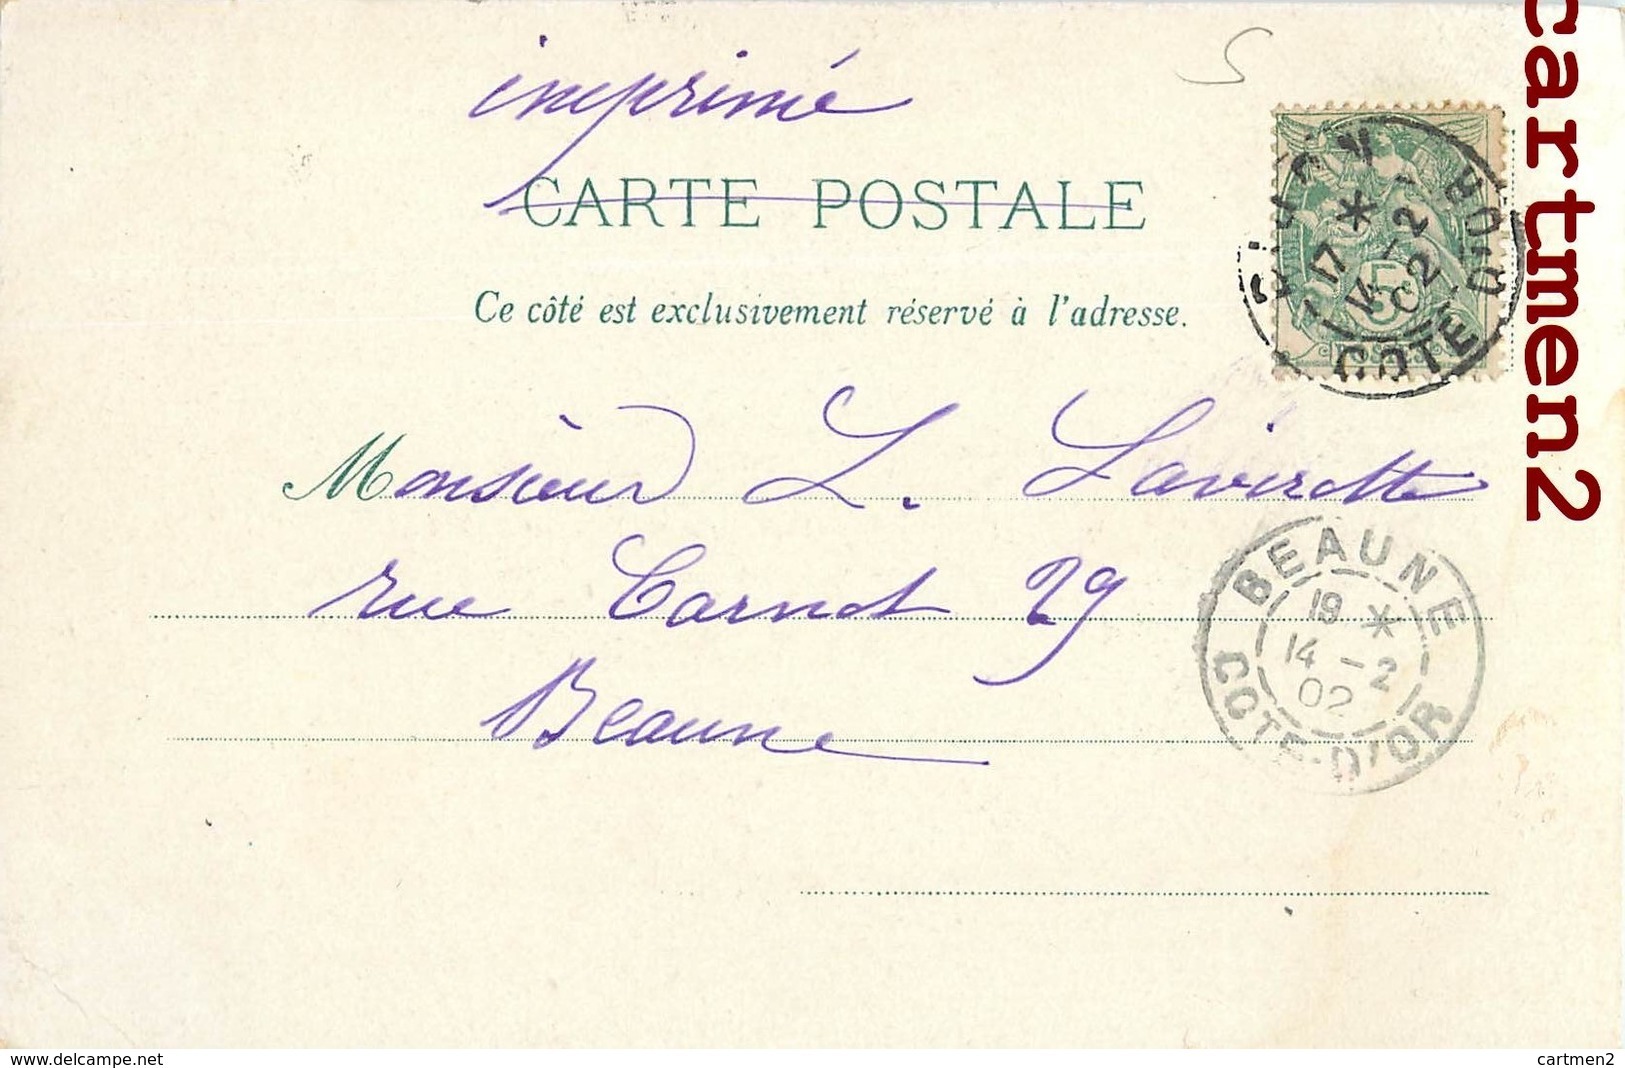 imprimé
CARTE POSTALE
Ce côté est exclusivement réservé à l'adresse.
Monsieur L. Lavirotte
rue Carnot 29
Beaune
17 *
14 -2
02
COTE D'OR
5
BEAUNE
19 *
14 -2
02
COTE-D'OR
cartmen2
www.delcampe.net
cartmen2